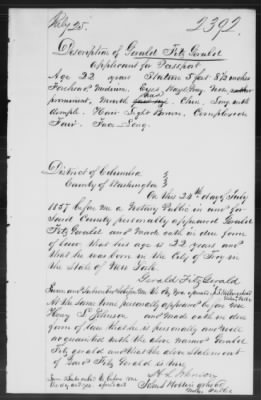 July 25. 2392.
Description of Gerald Fitz Gerald
applicant for Passport
Age 22 years Stature 5 feet 8½ inches
Forehead Medium. Eyes, Hazel Grey. Nose rather
prominent, Mouth Chin, Long with
dimple. Hair Light Brown. Complexion
Fair. Face Long.
District of Columbia
County of Washington
On this 24th day of July
1857 before me a Notary Public in and for
Said County personally appeared Gerald
Fitz Gerald and Made oath in due form
of law that his age is 22 years and
that he was born in the City of Troy in
the State of New York.
Gerald Fitz Gerald
Sworn and Subscribed before me
At the Same time personally appeared before me
Henry S. Johnson and Made oath in due
form of law that he is personally and well
acquainted with the above named Gerald
Fitz Gerald and the above Statement
of Said Fitz Gerald is true
Johnson
Sworn & Subscribed to before me